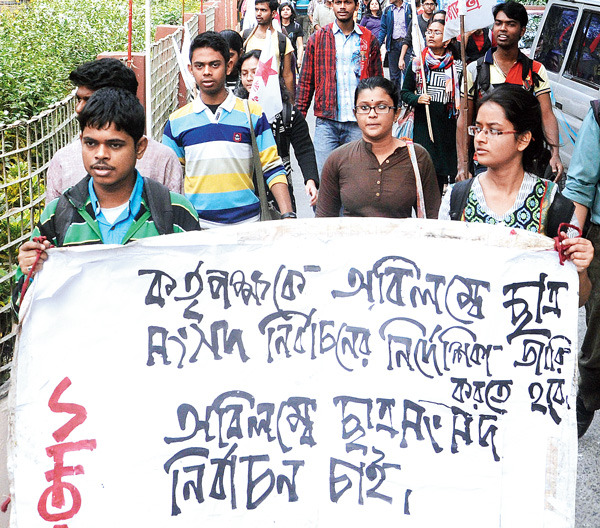 কর্তৃপক্ষকে অবিলম্বে ছাত্র
সংসদ নির্বাচনের নির্দেশিকা জারি
করতে হবে.
অবিলম্বে ছাত্র সংসদ
নির্বাচন চাই.